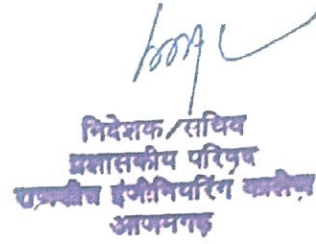 निदेशक/सचिव
प्रशासकीय परिषद
राजकीय इंजीनियरिंग कालेज
आजमगढ़